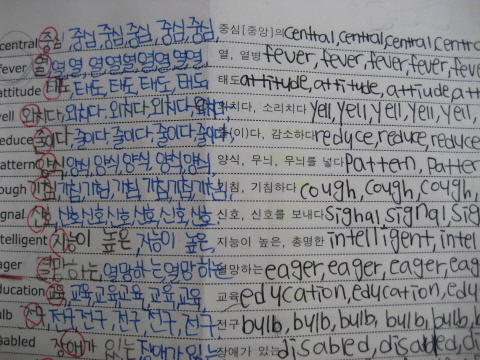 central 중심, 중심, 중심, 중심, 중심, 중심[중앙]의 central, central, central, centra
fever 열 열, 열, 열 열 열 열, 열, 열, 열병 fever, fever, fever, fever, feve
attitude 태도, 태도, 태도, 태도, 태도 태도 attitude, attitude, attiude, att
ell 외치다, 외치다, 외치다, 외치다, 소리치다 yell, yell, yell, yell, yell,
educe 줄이다, 줄이다, 줄이다, 줄이다, (이)다, 감소하다 reduce, reduce, reduce
attern 양식, 양식, 양식, 양식, 양식, 양식, 양식, 무늬, 무늬를 넣다 pattern, patter
ough 기침, 기침, 기침, 기침, 기침, 기침, 기침, 기침하다 cough, cough, cough,
gnal 신호, 신호, 신호, 신호, 신호, 신호, 신호를 보내다 signal, signal, sig
telligent 지능이 높은, 지능이 높은 지능이 높은, 총명한 intelligent, intel
ager 열망하는, 열망하는, 열망하는 열망하는 eager, eager, eager, eag
ducation 교육, 교육, 교육, 교육, 교육, 교육, 교육 education, education, edu
ulb 전구, 전구, 전구, 전구, 전구, 전구 bulb, bulb, bulb, bulb, bulb, b
sabled 장애가 있는, 장애가 있는 장애가 있는 disabled, disabled, dis